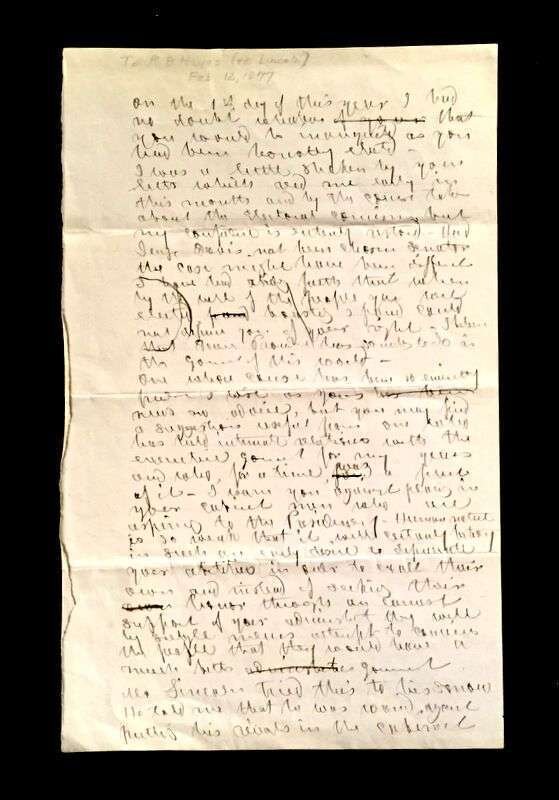 To R B Hayes (re Lincoln)
Feb 12, 1877
on the 1st day of this year I had
no doubt whatever that
you would be inaugurated as you
had been honestly elected -
I was a little shaken by your
letter which red me early in
this month and by the course
about the Electoral Commission but
my confidence is entirely restored - Had
Judge Davis not been chosen Senator
the case might have been different
I have had faith that when
by the will of the people you were
elected honestly fraud could
not deprive you of your right - I believe
that has to do in
the gormt of this world -
One whose cause has been so eminently
as yours
needs no advice, but you may find
a suggestion useful from one who
has had intimate relations with the
executive gormt for many years
and who, for a time, was a part
of it - I warn you against placing in
your cabinet men who are
aspiring to the Presidency - Human nature
is so weak that it will certainly
in such an early desire to depreciate
your abilities in order to exalt their
own and instead of seeking their
own honor through an earnest
support of your administ they will
by subtle means attempt to convince
the people that they would have a
much better administration gormt
Mr Lincoln tried this to his sorrow
He told me that he was warned against
putting his rivals in the cabinet